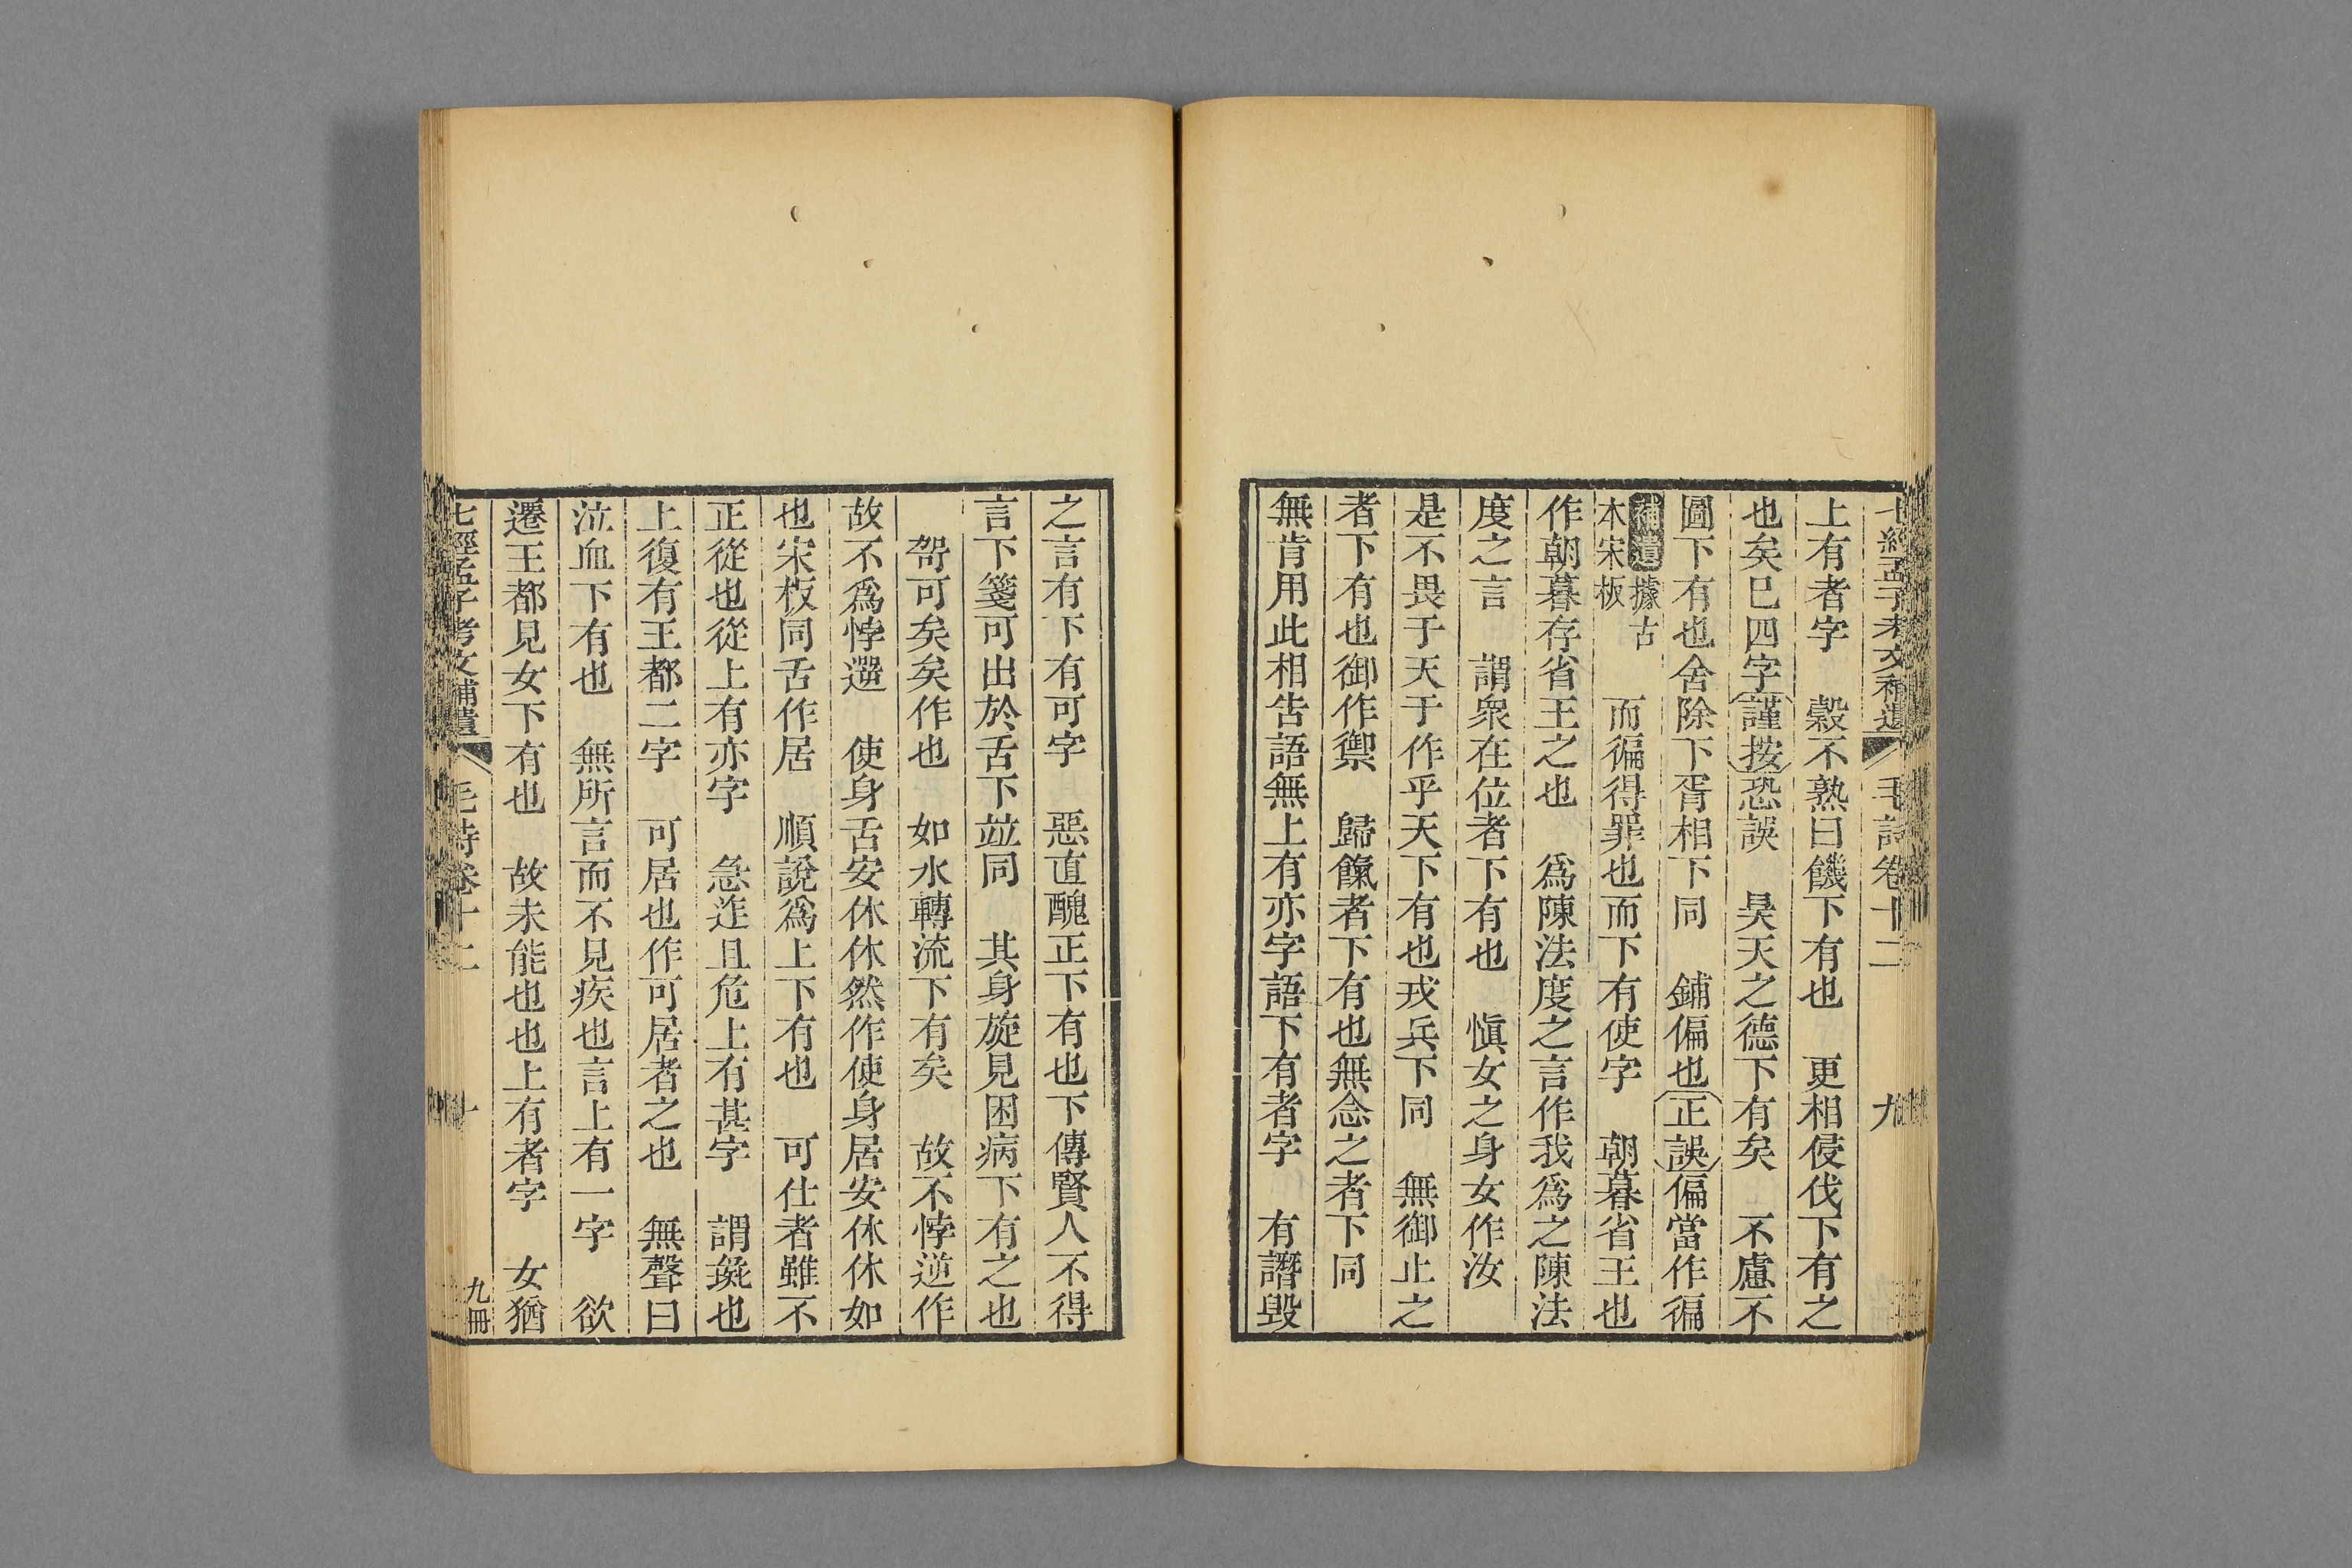 七經孟子考文補遺 毛詩卷十二 九
上有者字 穀不熟曰饑下有也 更相侵伐下有之
也矣巳四字謹按恐誤 昊天之德下有矣 不慮不
圖下有也舍除下胥相下同 鋪偏也正誤偏當作徧
補遺據古本宋板 而徧得罪也而下有使字 朝暮省王也
作朝暮存省王之也 爲陳法度之言作我爲之陳法
度之言 謂衆在位者下有也 愼女之身女作汝
是不畏于天于作乎天下有也戎兵下同 無御止之
者下有也御作禦 歸餼者下有也無念之者下同
無肯用此相告語無上有亦字語下有者字 有譖毀
之言有下有可字 惡直醜正下有也下傳賢人不得
言下箋可出於舌下竝同 其身旋見困病下有之也
哿可矣矣作也 如水轉流下有矣 故不悖逆作
故不爲悖選 使身舌安休休然作使身居安休休如
也宋板同舌作居 順說爲上下有也 可仕者雖不
正從也從上有亦字 急迮且危上有甚字 謂䟽也
上復有王都二字 可居也作可居者之也 無聲曰
泣血下有也 無所言而不見疾也言上有一字 欲
遷王都見女下有也 故未能也也上有者字 女猶
七經孟子考文補遺 毛詩卷十二 十 九冊